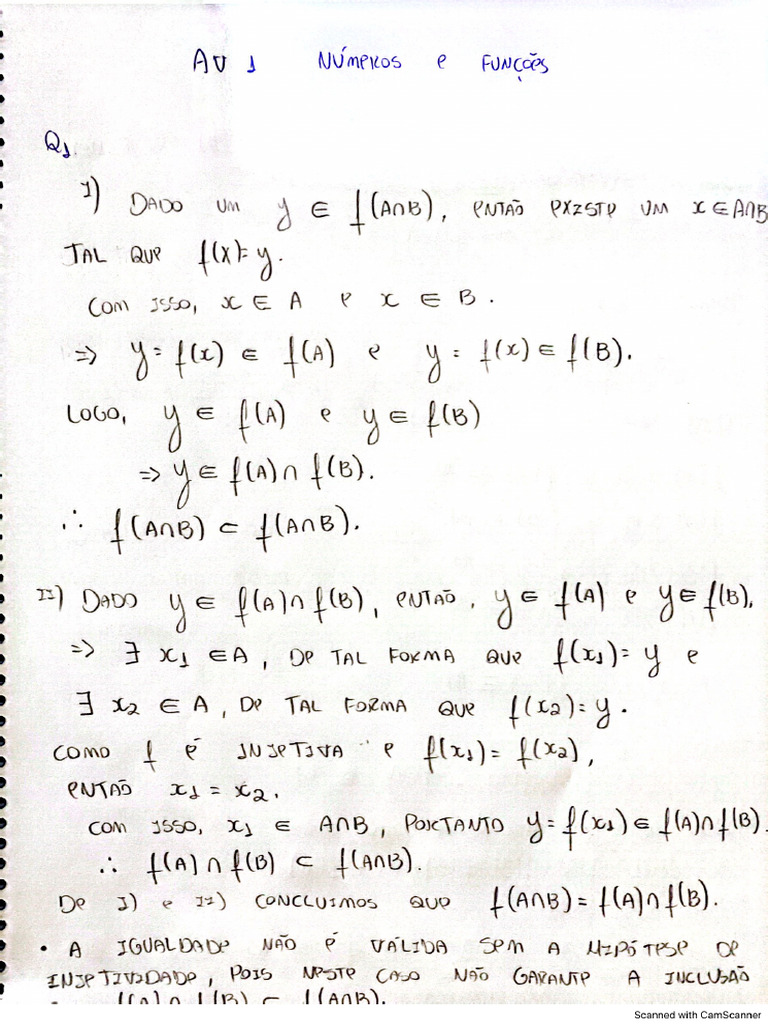 AV 1 NÚMEROS e FUNÇÕES
Q1.
I) DADO UM y ∈ f(A∩B), ENTÃO EXISTE UM x ∈ A∩B
TAL QUE f(x)=y.
COM ISSO, x ∈ A e x ∈ B.
=> y = f(x) ∈ f(A) e y = f(x) ∈ f(B).
LOGO, y ∈ f(A) e y ∈ f(B)
=> y ∈ f(A) ∩ f(B).
∴ f(A∩B) ⊂ f(A∩B).
II) DADO y ∈ f(A)∩ f(B), ENTÃO, y ∈ f(A) e y ∈ f(B),
=> ∃ x1 ∈ A, DE TAL FORMA QUE f(x1) = y e
∃ x2 ∈ A, DE TAL FORMA QUE f(x2) = y.
COMO f É INJETIVA e f(x1) = f(x2),
ENTÃO x1 = x2.
COM ISSO, x1 ∈ A∩B, PORTANTO y = f(x1) ∈ f(A)∩ f(B).
∴ f(A) ∩ f(B) ⊂ f(A∩B).
DE I) e II) CONCLUIMOS QUE f(A∩B) = f(A)∩ f(B).
• A IGUALDADE NÃO É VÁLIDA SEM A HIPÓTESE DE
INJETIVIDADE, POIS NESTE CASO NÃO GARANTE A INCLUSÃO
f(A) ∩ f(B) ⊂ f(A∩B).
Scanned with CamScanner